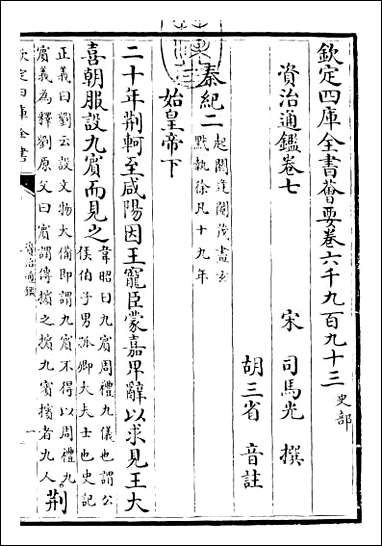 欽定四庫全書薈要卷六千九百九十三 史部
資治通鑑卷七
宋 司馬光 撰
胡三省 音註
秦紀二 起閼逢閹茂盡玄
黓執徐凡十九年
始皇帝下
二十年荆軻至咸陽因王寵臣蒙嘉卑辭以求見王大
喜朝服設九賓而見之 韋昭曰九賓周禮九儀也謂公
侯伯子男孤卿大夫士也史記
正義曰劉云設文物大備即謂九賓不得以周禮九
賓義為釋劉原父曰賓謂傳擯之擯九賓擯者九人 荆
欽定四庫全書
資治通鑑
一